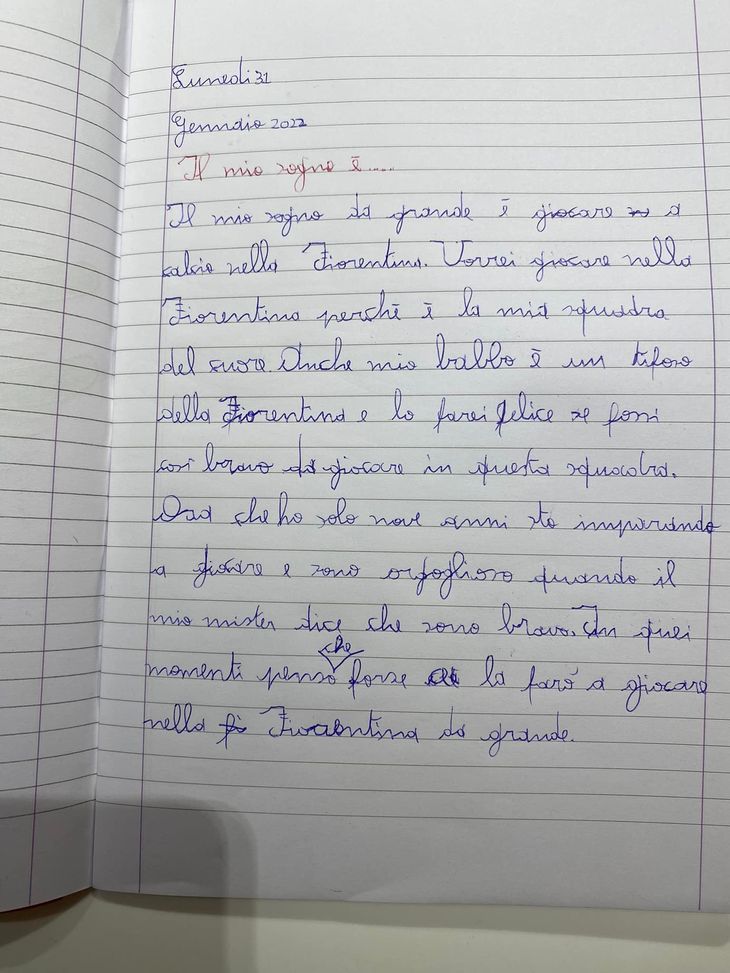 Lunedì 31
Gennaio 2022
Il mio sogno è.....
Il mio sogno da grande è giocare a
calcio nella Fiorentina. Vorrei giocare nella
Fiorentina perché è la mia squadra
del cuore. Anche mio babbo è un tifoso
della Fiorentina e lo farei felice se fossi
così bravo da giocare in questa squadra.
Ora che ho solo nove anni sto imparando
a giocare e sono orgoglioso quando il
mio mister dice che sono bravo. In quei
momenti penso che forse ce la farò a giocare
nella Fiorentina da grande.